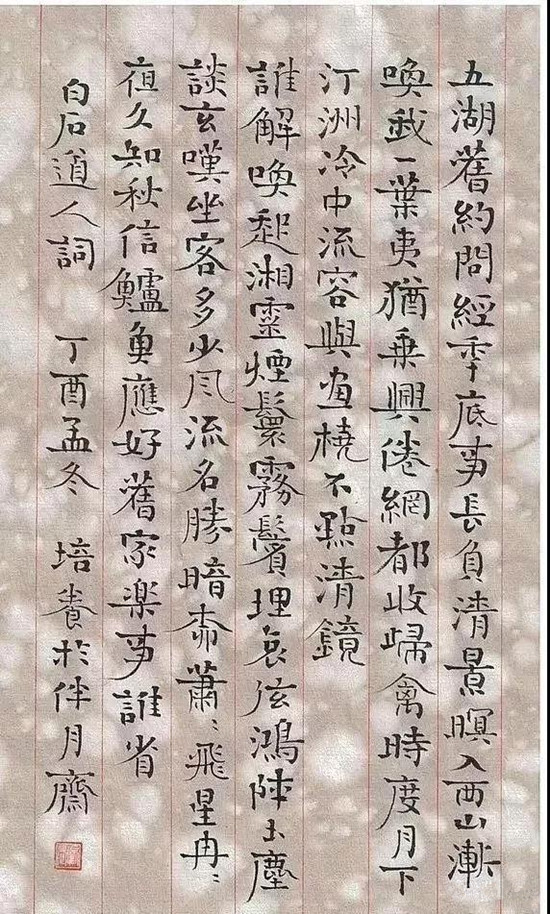 五湖舊約問經年底事長負清景暝入西山漸
喚我一葉夷猶乘興倦網都收歸禽時度月下
汀洲冷中流容與畫橈不點清鏡
誰解喚起湘靈煙鬟霧鬢理哀弦鴻陣玉塵
談玄嘆坐客多少風流名勝暗柳蕭〻飛星冉〻
夜久知秋信鱸魚應好舊家樂事誰省
白石道人詞 丁酉孟冬 培養於伴月齋